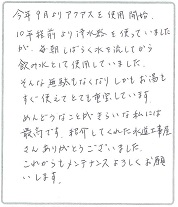 今年9月よりアクアスを使用開始.
10年程前より浄水器を使っていました
が、毎朝しばらく水を流してから
飲み水として使用していました。
そんな無駄もなくなりしかもお湯も
すぐ使えてとても重宝しています
めんどうなことがきらいな私には
最高です. 紹介してくれた水道工事屋
さんありがとうございました。
これからもメンテナンスよろしくお願
いします。